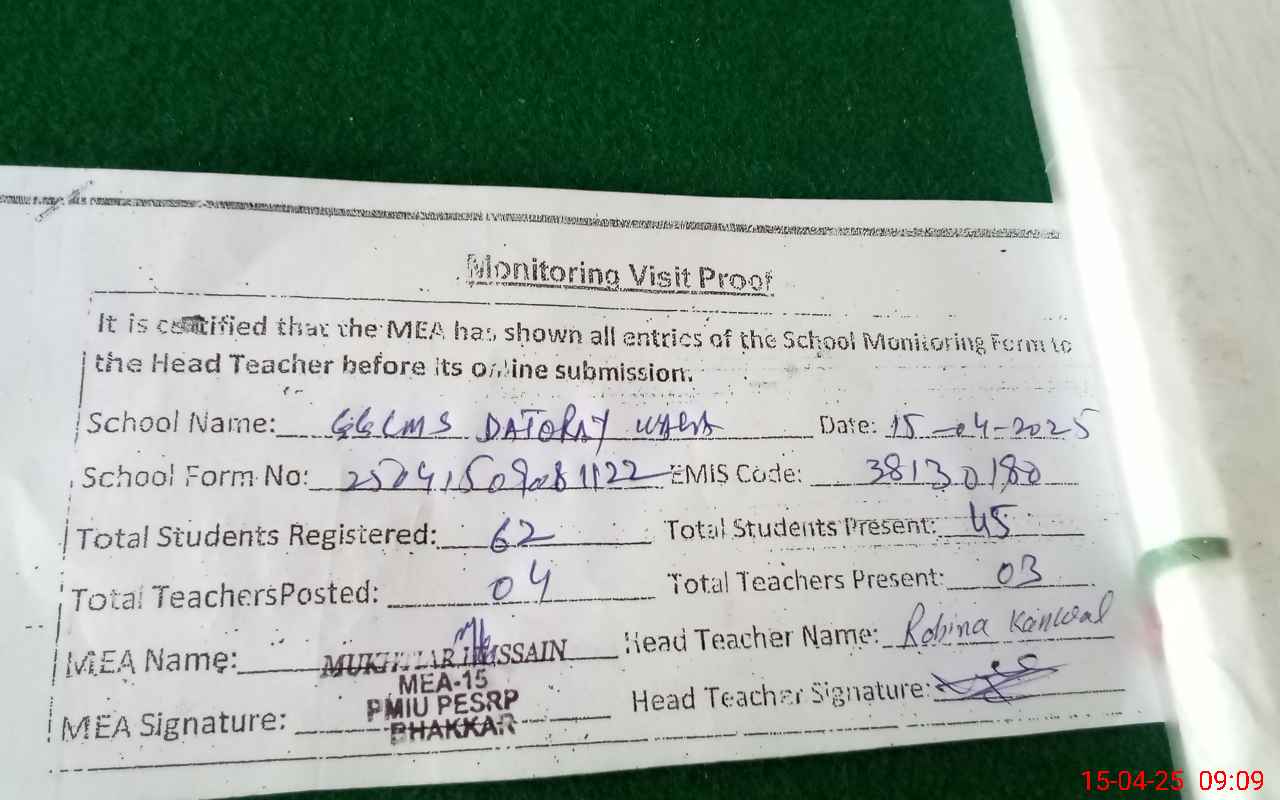 Monitoring Visit Proof
It is certified that the MEA has shown all entries of the School Monitoring Form to
the Head Teacher before its online submission.
School Name: GGCMS DATORAY WALA Date: 15-04-2025
School Form No: EMIS Code: 38130180
Total Students Registered: 62 Total Students Present: 45
Total TeachersPosted: 04 Total Teachers Present: 03
MEA Name: MUKHTIAR HUSSAIN Head Teacher Name: Robina Kanwal
MEA-15
PMIU PESRP
BHAKKAR
MEA Signature: Head Teacher Signature:
15-04-25 09:09